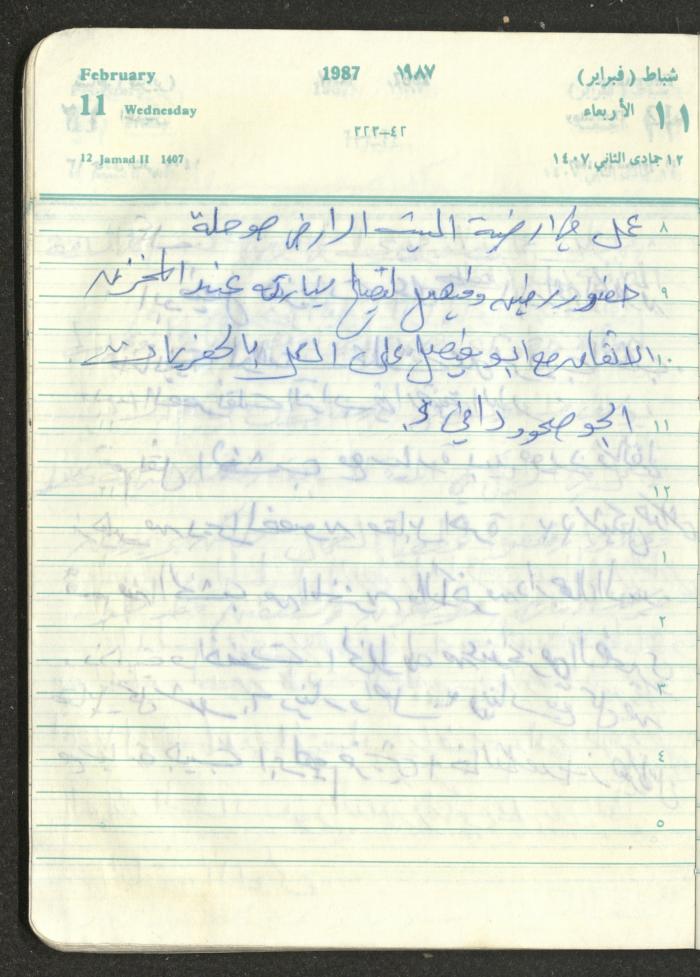 February 1987 ١٩٨٧ شباط (فبراير)
11 Wednesday ١١ الأربعاء
٤٢-٣٢٣
12 Jamad II 1407 ١٢ جمادى الثاني ١٤٠٧
٨ عمل في ارضية البيت الارض موحلة
٩ حضور وفيصل سيارته عند المخزن
١٠ الاتفاق مع ابو فيصل على العمل بالحفريات
١١ الجو صحو دافئ
١٢
١
٢
٣
٤
٥